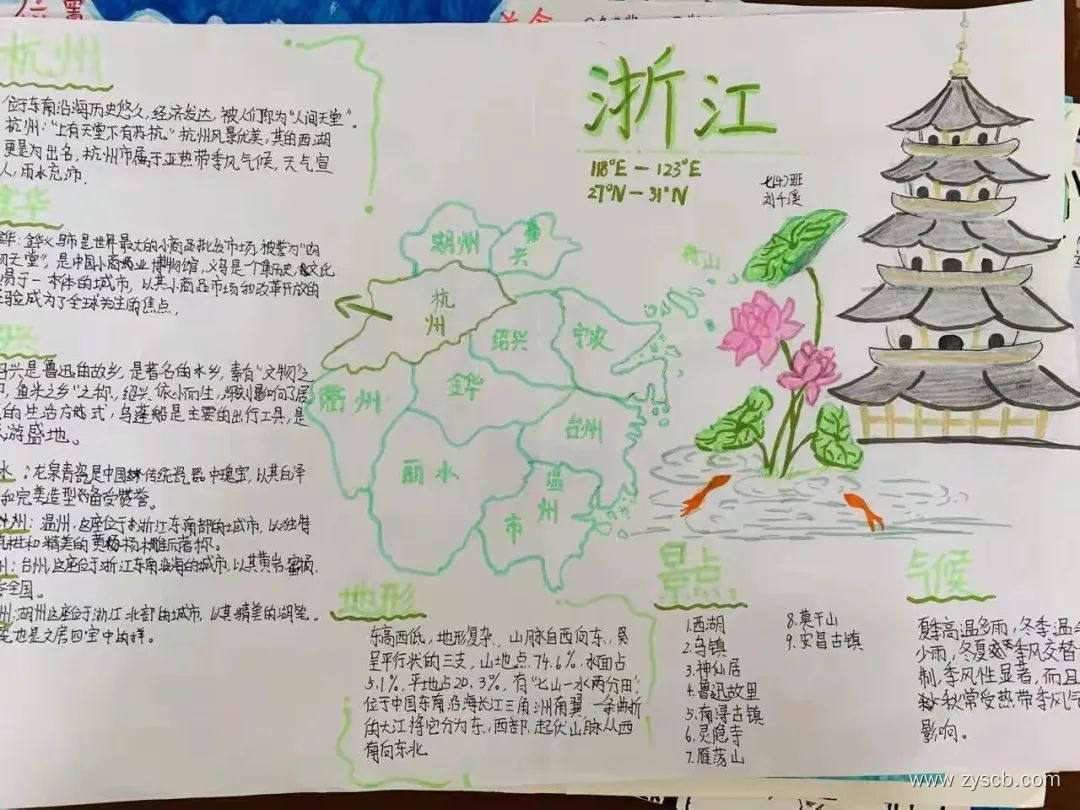 杭州
位于东南沿海历史悠久,经济发达,被人们称为“人间天堂”.
杭州:“上有天堂下有苏杭.”杭州风景优美,其的西湖
更是为出名,杭州市属于亚热带季风气候,天气宜
人,雨水充沛.
金华
金华义乌市是世界最大的小商品批发市场,被誉为“购
物天堂”,是中国小商品业博物馆,义乌是一个集历史
易于一本体的城市,以其小商品市场和改革开放的
验成为了全球关注的焦点,
兴是鲁迅的故乡,是著名的水乡,素有“文物之
,鱼米之乡”之称,绍兴依水而生,深刻影响了居
的生活方式,乌蓬船是主要的出行工具,是
游盛地。
水:龙泉青瓷是中国传统瓷器中瑰宝,以其白泽
和完美造型备受赞誉。
州:温州,这座位于浙江东南部的城市,以独特
和精美的黄杨木雕而著称。
州:台州,这座位于浙江东南沿海的城市,以其黄岩蜜
全国。
州:湖州这座位于浙江北部的城市,以其精美的湖笔,
也是文房四宝中的样。
浙江
118°E — 123°E
27°N — 31°N
七(4)班
刘千溪
湖州
兴
舟山
杭州
绍兴
宁波
衢州
金华
台州
丽水
温州
市
地形
东高西低,地形复杂,山脉自西向东,
呈平行状的三支,山地占74.6%,水面占
5.1%,平地占20.3%,有“七山一水两分田”
位于中国东南沿海长江三角洲南翼,一条曲折
的大江将它分为东、西部,起伏山脉从西
南向东北
景点
1.西湖
2.乌镇
3.神仙居
4.鲁迅故里
5.南浔古镇
6.灵隐寺
7.雁荡山
8.莫干山
9.安昌古镇
气候
夏季高温多雨,冬季温
少雨,冬夏季风交替
制,季风性显著,而且
秋常受热带季风气
影响。
www.zyscb.com